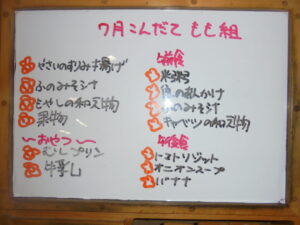 7月こんだて もも組
やさいのすりみ揚げ
ふのみそ汁
もやしの和え物
果物
〜おやつ〜
むしプリン
牛乳
午前食
米粥
魚のあんかけ
ふのみそ汁
キャベツの和え物
午後食
トマトリゾット
オニオンスープ
バナナ